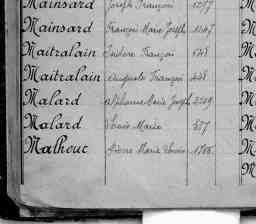 Mainsard Joseph François
Mainsard François Marie Joseph
Maitralain Isidore François
Maitralain Auguste François
Malard Alphonse Marie Joseph
Malard Louis Marie 577
Malhouc Pierre Marie Louis
M
M
M
M
M